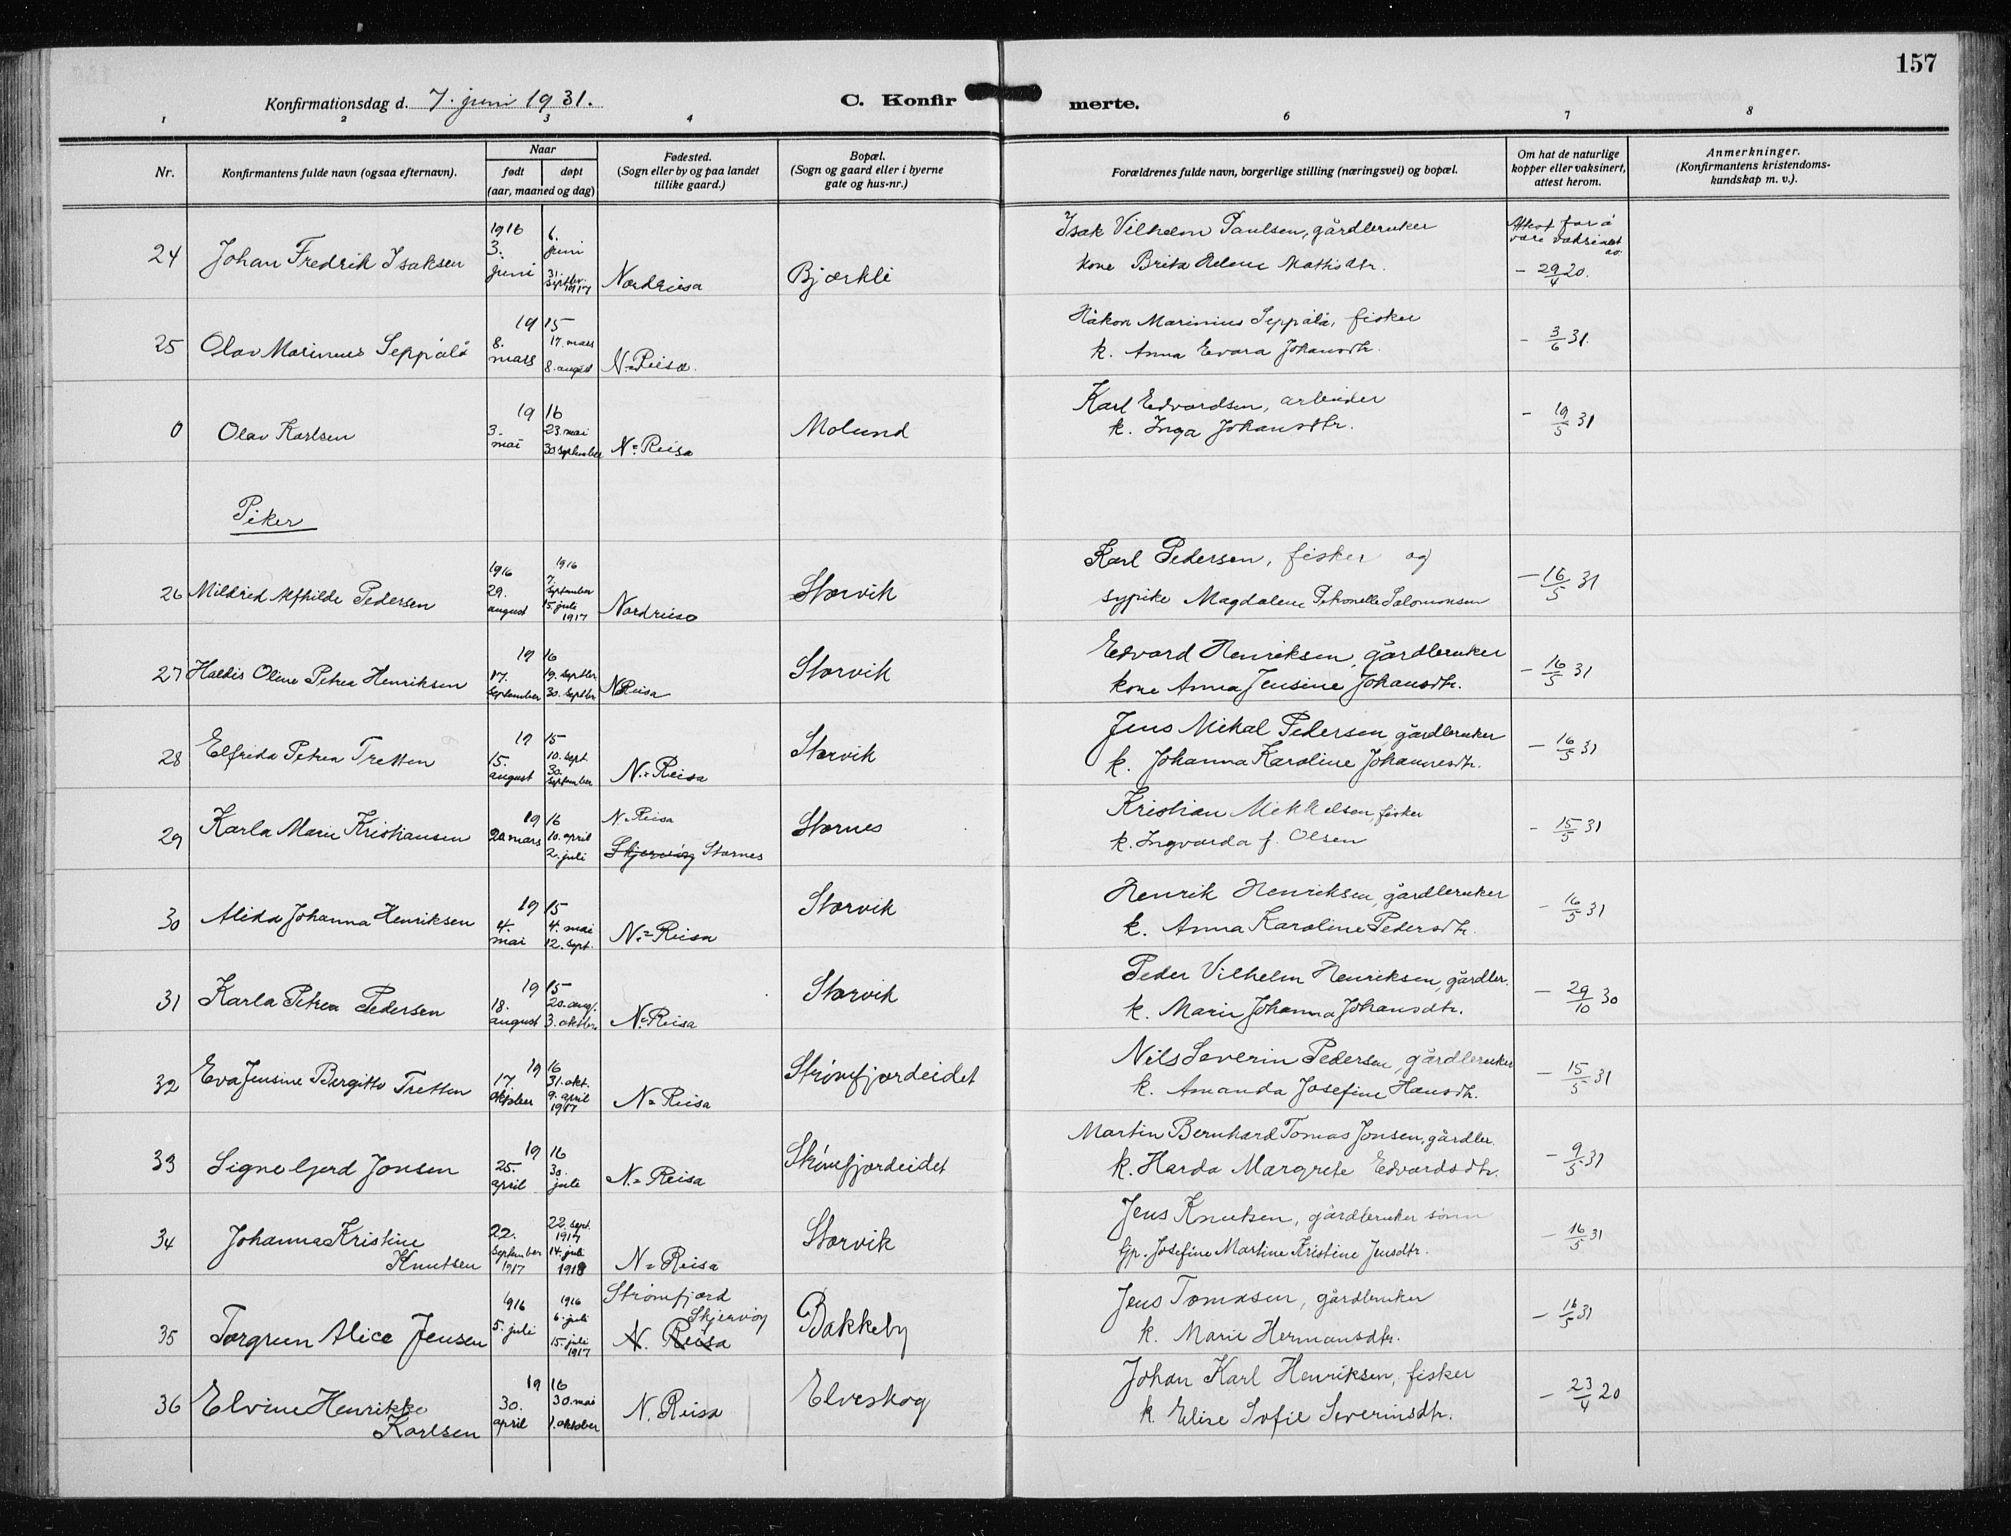 157
Konfirmationsdag d. 7. juni 1931.
C. Konfirmerte.
1 2 3 4 6 7 8
Nr.
Konfirmantens fulde navn (ogsaa efternavn).
Naar
født døpt
(aar, maaned og dag)
Fødested.
(Sogn eller by og paa landet
tillike gaard.)
Bopæl.
(Sogn og gaard eller i byerne
gate og hus-nr.)
Forældrenes fulde navn, borgerlige stilling (næringsvei) og bopæl.
Om hat de naturlige
kopper eller vaksinert,
attest herom.
Anmerkninger.
(Konfirmantens kristendoms-
kundskap m. v.).
24 Johan Fredrik Isaksen
1916 3. juni
6. juni
31. septbr. 1917
Nordreisa
Bjørkli
Isak Vilhelm Paulsen, gårdbruker
kone Brita Helene Mathisdtr.
Attest for å
være vaksinert
- 29/4 20.
25 Olav Marinius Seppälä
1915
8. mars
17. mars
8. august
N.=Reisa.
Håkon Marinius Seppälä, fisker
k. Anna Evara Johansdtr.
- 3/6 31.
0 Olav Karlsen
1916
3. mai
23. mai
30 september
N.=Reisa
Molund
Karl Edvardsen, arbeider
k. Inga Johansdtr.
- 19/5 31
Piker
26 Mildred Alfhilde Pedersen
1916
29. august
1916
7. september
15. juli 1917
Nordreisa
Storvik
Karl Pedersen, fisker og
sypike Magdalene Petronelle Salomonsen
- 16/5 31
27 Haldis Oline Petrea Henriksen
1916
17. september
19. septbr
30. septbr
N Reisa
Storvik
Edvard Henriksen, gårdbruker
kone Anna Jensine Johansdtr.
- 16/5 31
28 Elfrida Petrea Tretten
1915
15. august
10. sept.
30. september
N.=Reisa
Storvik
Jens Mikal Pedersen gårdbruker
k. Johanna Karoline Johannesdtr.
- 16/5 31
29 Karla Marie Kristiansen
1916
20 mars
10. april
2. juli
N. Reisa
Skjervøy Stornes
Stornes
Kristian Mikkelsen, fisker
k. Ingvarda f. Olsen
- 15/5 31
30 Alida Johanna Henriksen
1915
4. mai
4. mai
12. sept.
N.=Reisa
Storvik
Henrik Henriksen, gårdbruker
k. Anna Karoline Pedersdtr.
- 16/5 31
31 Karla Petrea Pedersen
1915
18. august
20. aug.
3. oktbr.
N.=Reisa
Storvik
Peder Vilhelm Henriksen, gårdbr.
k. Marie Johanna Johansdtr.
- 29/10 30
32 Eva Jensine Bergitte Tretten
1916
17. oktober
31. okt.
9. april
1917
N.=Reisa
Strømfjordeidet
Nils Severin Pedersen, gårdbruker
k. Amanda Josefine Hansdtr.
- 15/5 31
33 Signe Gerd Jonsen
1916
25. april
30. juli
N.=Reisa
Strømfjordeidet
Martin Bernhard Tomas Jonsen, gårdbr.
k. Harda Margrete Edvardsdtr.
- 9/5 31
34 Johanna Kristine
Knutsen
22. september 1917
22. sept. 1917
14. juli 1918
N=Reisa
Storvik
Jens Knutsen, gårdbruker sønn
Gp. Josefine Martine Kristine Jensdtr.
- 16/5 31
35 Torgrun Alice Jensen
1916
5. juli
1916
6. juli
15. juli 1917
Strømfjord
Skjervøy
N. Reisa
Bakkeby
Jens Tomasen, gårdbruker
k. Marie Hermansdtr.
- 16/5 31
36 Elvine Henrikke
Karlsen
1916
30. april
30. mai
1. oktober
N. Reisa
Elveskog
Johan Karl Henriksen, fisker
k. Elise Sofie Severinsdtr.
- 23/4 20